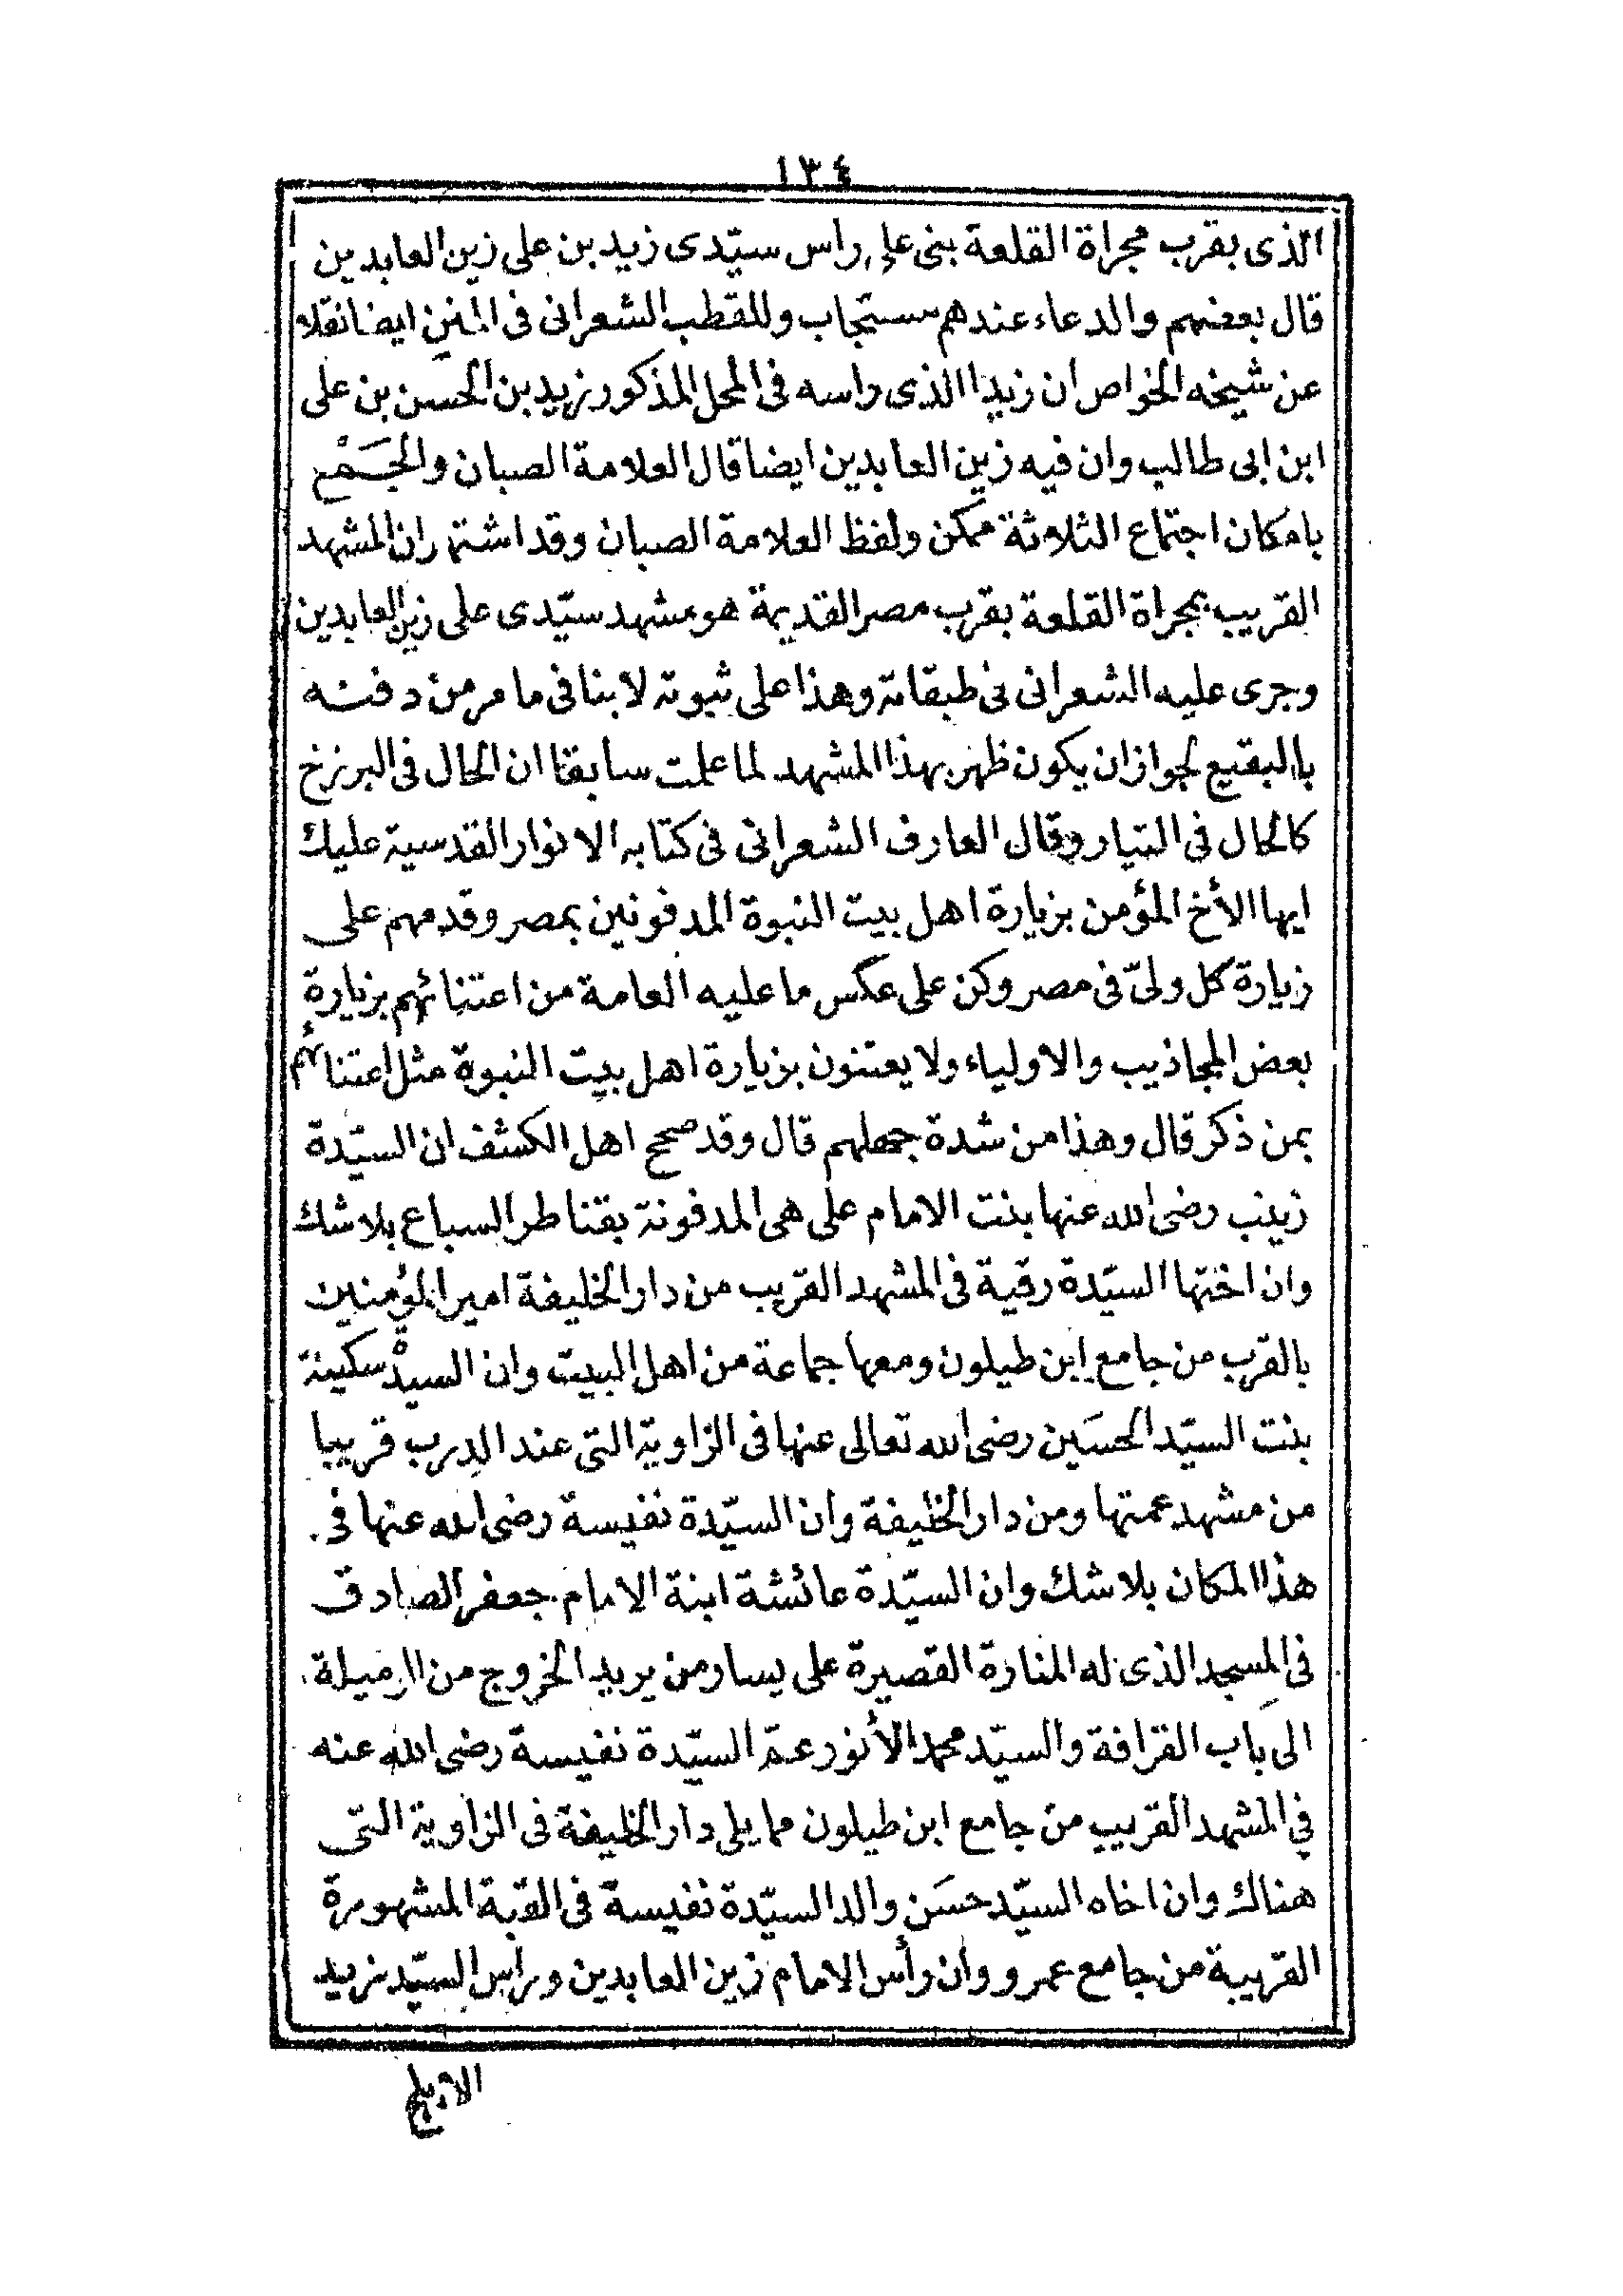 ١٣٤
الذى بقرب مجراة القلعة بنى على راس سيّدى زيد بن على زين العابدين
قال بعضهم والدعاء عندهم مستجاب وللقطب الشعرانى فى المنن ايضا نقلا
عن شيخه الخواص ان زيدا الذى راسه فى المحل المذكور زيد بن الحسن بن على
ابن ابى طالب وان فيه زين العابدين ايضا قال العلامة الصبان والجَمْع
بامكان اجتماع الثلاثة ممكن ولفظ العلامة الصبان وقد اشتهر ان المشهد
القريب بمجراة القلعة بقرب مصر القديمة هو مشهد سيّدى على زين العابدين
وجرى عليه الشعرانى فى طبقاته وهذا على ثبوته لا ينافى ما مر من دفنه
بالبقيع لجواز ان يكون ظهر بهذا المشهد لما علمت سابقا ان الحال فى البرزخ
كالحال فى التيار وقال العارف الشعرانى فى كتابه الانوار القدسية عليك
ايها الأخ المؤمن بزيارة اهل بيت النبوة المدفونين بمصر وقدمهم على
زيارة كل ولىّ فى مصر وكن على عكس ما عليه العامة من اعتنائهم بزيارة
بعض المجاذيب والاولياء ولا يعتنون بزيارة اهل بيت النبوة مثل اعتنائهم
بمن ذكر قال وهذا من شدة جهلهم قال وقد صحح اهل الكشف ان السيّدة
زينب رضى الله عنها بنت الامام على هى المدفونة بقناطر السباع بلا شك
وان اختها السيّدة رقية فى المشهد القريب من دار الخليفة امير المؤمنين
بالقرب من جامع ابن طيلون ومعها جماعة من اهل البيت وان السيدة سكينة
بنت السيّد الحسَين رضى الله تعالى عنها فى الزاوية التى عند الدرب قريبا
من مشهد عمتها ومن دار الخليفة وان السيّدة نفيسة رضى الله عنها فى
هذا المكان بلا شك وان السيّدة عائشة ابنة الامام جعفر الصادق
فى المسجد الذى له المنارة القصيرة على يسار من يريد الخروج من الرميلة
الى باب القرافة والسيّد محمد الأنور عمّ السيّدة نفيسة رضى الله عنه
فى المشهد القريب من جامع ابن طيلون مما يلى دار الخليفة فى الزاوية التى
هناك وان اخاه السيّد حسَن والد السيّدة نفيسة فى القبة المشهورة
القريبة من جامع عمرو وان رأس الامام زين العابدين وراس السيّد زيد
الابلج